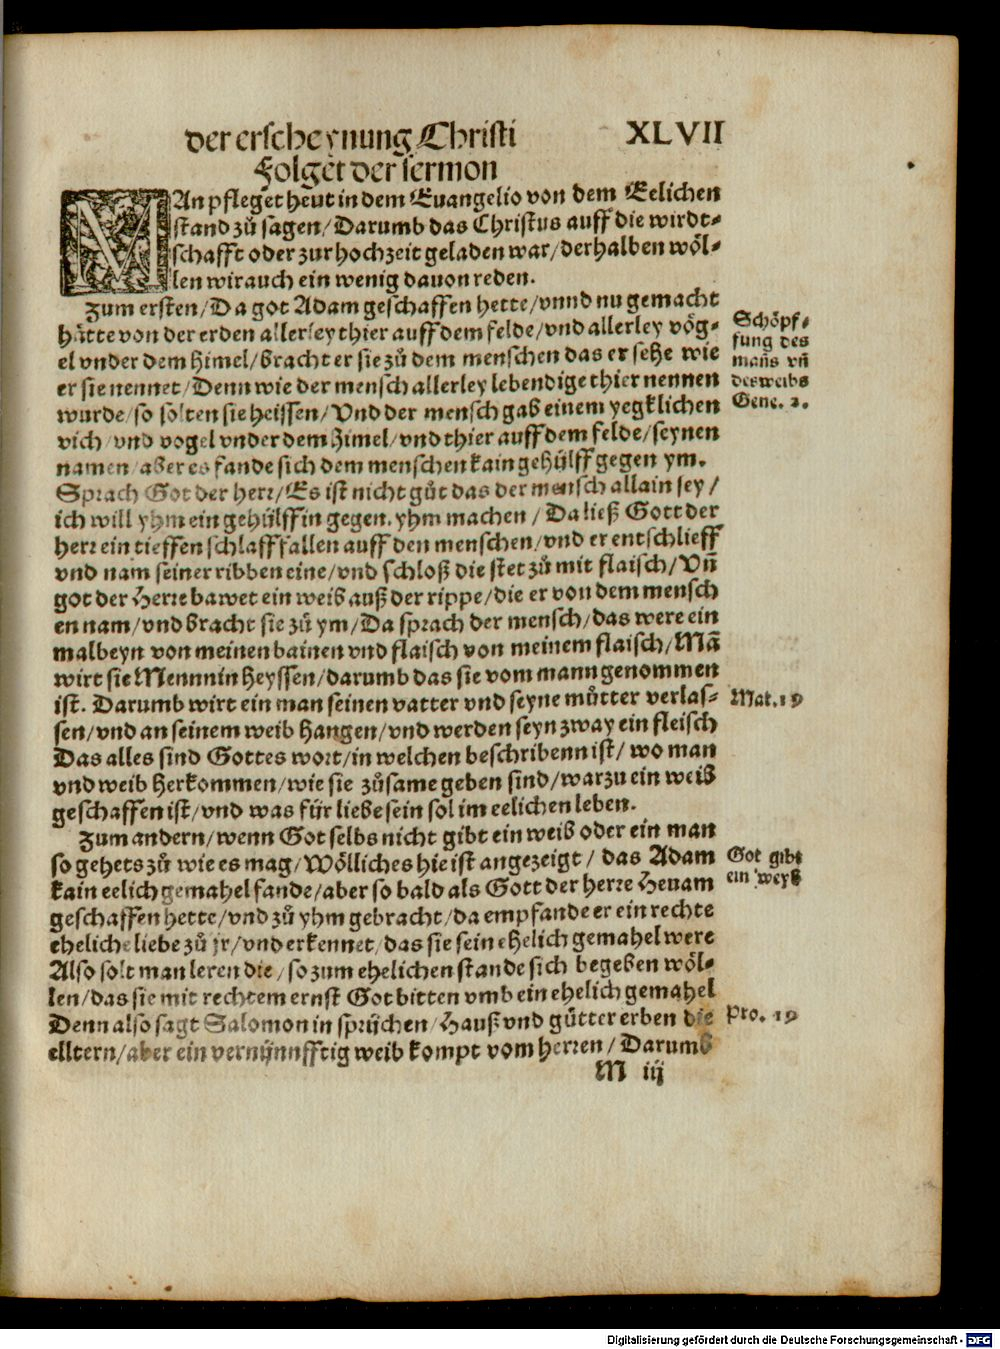 der erscheynung Christi XLVII
Folget der sermon
MAn pfleget heut in dem Euangelio von dem Eelichen
stand zů sagen/ Darumb das Christus auff die wirdt⸗
schafft oder zur hochzeit geladen war/ derhalben wöl⸗
len wir auch ein wenig dauon reden.
Zum ersten/ Da got Adam geschaffen hette/ vnnd nu gemacht
hätte von der erden allerley thier auff dem felde/ vnd allerley vög⸗
el vnder dem himel/ bracht er sie zů dem menschen das er sehe wie
er sie nennet/ Denn wie der mensch allerley lebendige thier nennen
wurde/ so solten sie heissen/ Vnd der mensch gab einem yegklichen
vich/ vnd vogel vnder dem Himel/ vnd thier auff dem felde/ seynen
namen/ aber es fande sich dem menschen kain gehülff gegen ym.
Sprach Got der herr/ Es ist nicht gůt das der mensch allain sey/
ich will yhm ein gehülffin gegen. yhm machen/ Da ließ Gott der
herr ein tieffen schlaff fallen auff den menschen/ vnd er entschlieff
vnd nam seiner ribben eine/ vnd schloß die stet zů mit flaisch/ Vñ
got der Herre bawet ein weib auß der rippe/ die er von dem mensch
en nam/ vnd bracht sie zů ym/ Da sprach der mensch/ das were ein
malbeyn von meinen bainen vnd flaisch von meinem flaisch/ Mã
wirt sie Mennnin heyssen/ darumb das sie vom mann genommen
ist. Darumb wirt ein man seinen vatter vnd seyne můtter verlas⸗
sen/ vnd an seinem weib hangen/ vnd werden seyn zway ein fleisch
Das alles sind Gottes wort/ in welchen beschribenn ist/ wo man
vnd weib herkommen/ wie sie zůsame geben sind/ warzu ein weib
geschaffen ist/ vnd was für liebe sein sol im eelichen leben.
Zum andern/ wenn Got selbs nicht gibt ein weib oder ein man
so gehets zů wie es mag/ Wölliches hie ist angezeigt/ das Adam
kain eelich gemahel fande/ aber so bald als Gott der herre Heuam
geschaffen hette/ vnd zů yhm gebracht/ da empfande er ein rechte
eheliche liebe zů jr/ vnd erkennet/ das sie sein ehelich gemahel were
Also solt man leren die/ so zum ehelichen stande sich begeben wöl⸗
len/ das sie mit rechtem ernst Got bitten vmb ein ehelich gemahel
Denn also sagt Salomon in sprüchen/ Hauß vnd gütter erben die
elltern/ aber ein vernünnfftig weib kompt vom herren/ Darumb
M iij
Schöpf⸗
fung des
mañs vñ
des weibs
Gene. 2.
Mat. 19
Got gibt
ein weyb
Pro. 19
Digitalisierung gefördert durch die Deutsche Forschungsgemeinschaft - DFG